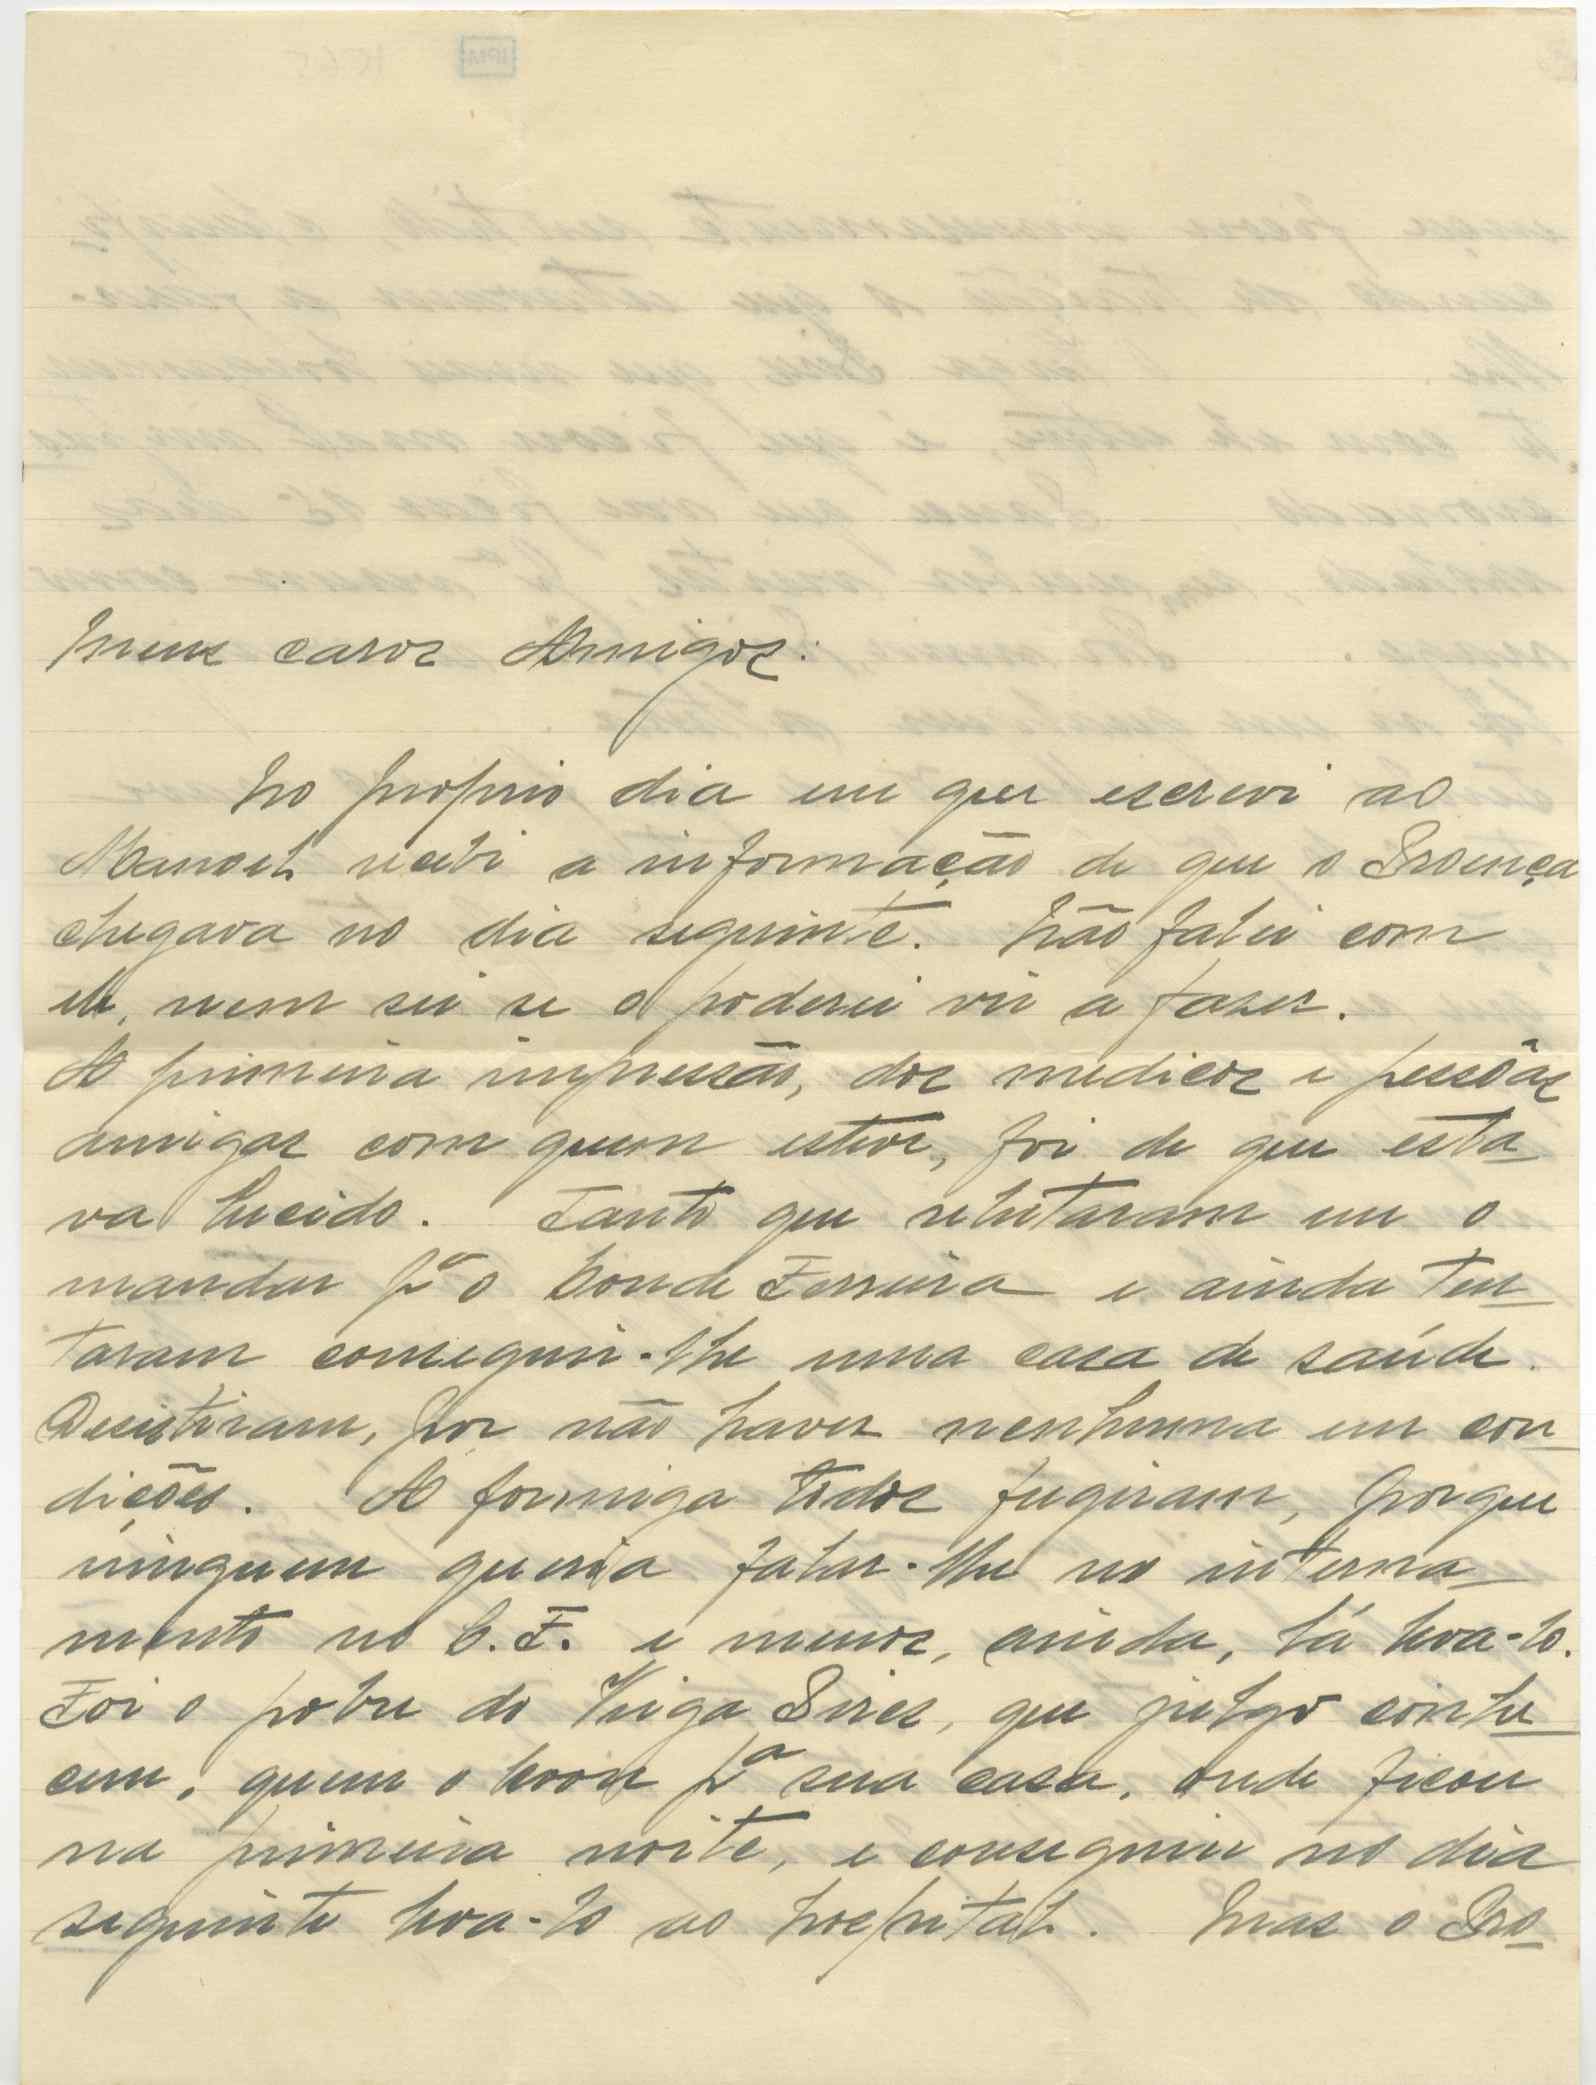 Meus caros Amigos:
No proprio dia em que escrevi ao
Manoel recebi a informação de que o Proença
chegava no dia seguinte. Não falei com
ele, nem sei se o poderei vir a fazer.
A primeira impressão, dos medicos e pessôas
amigas com quem esteve, foi de que esta-
va lucido. Tanto que relutaram em o
mandar pª o Conde Ferreira e ainda ten-
taram conseguir-lhe uma casa de saúde.
Desistiram, por não haver nenhuma em con-
dições. A formiga todos fugiram, porque
ninguem queria falar-lhe no interna-
mento no C. F. e menos, ainda, lá leva-lo.
Foi o pobre do Veiga Pires, que julgo conhe-
cem, quem o levou pª sua casa, onde ficou
na primeira noite, e conseguiu no dia
seguinte leva-lo ao hospital. Mas o Pro-